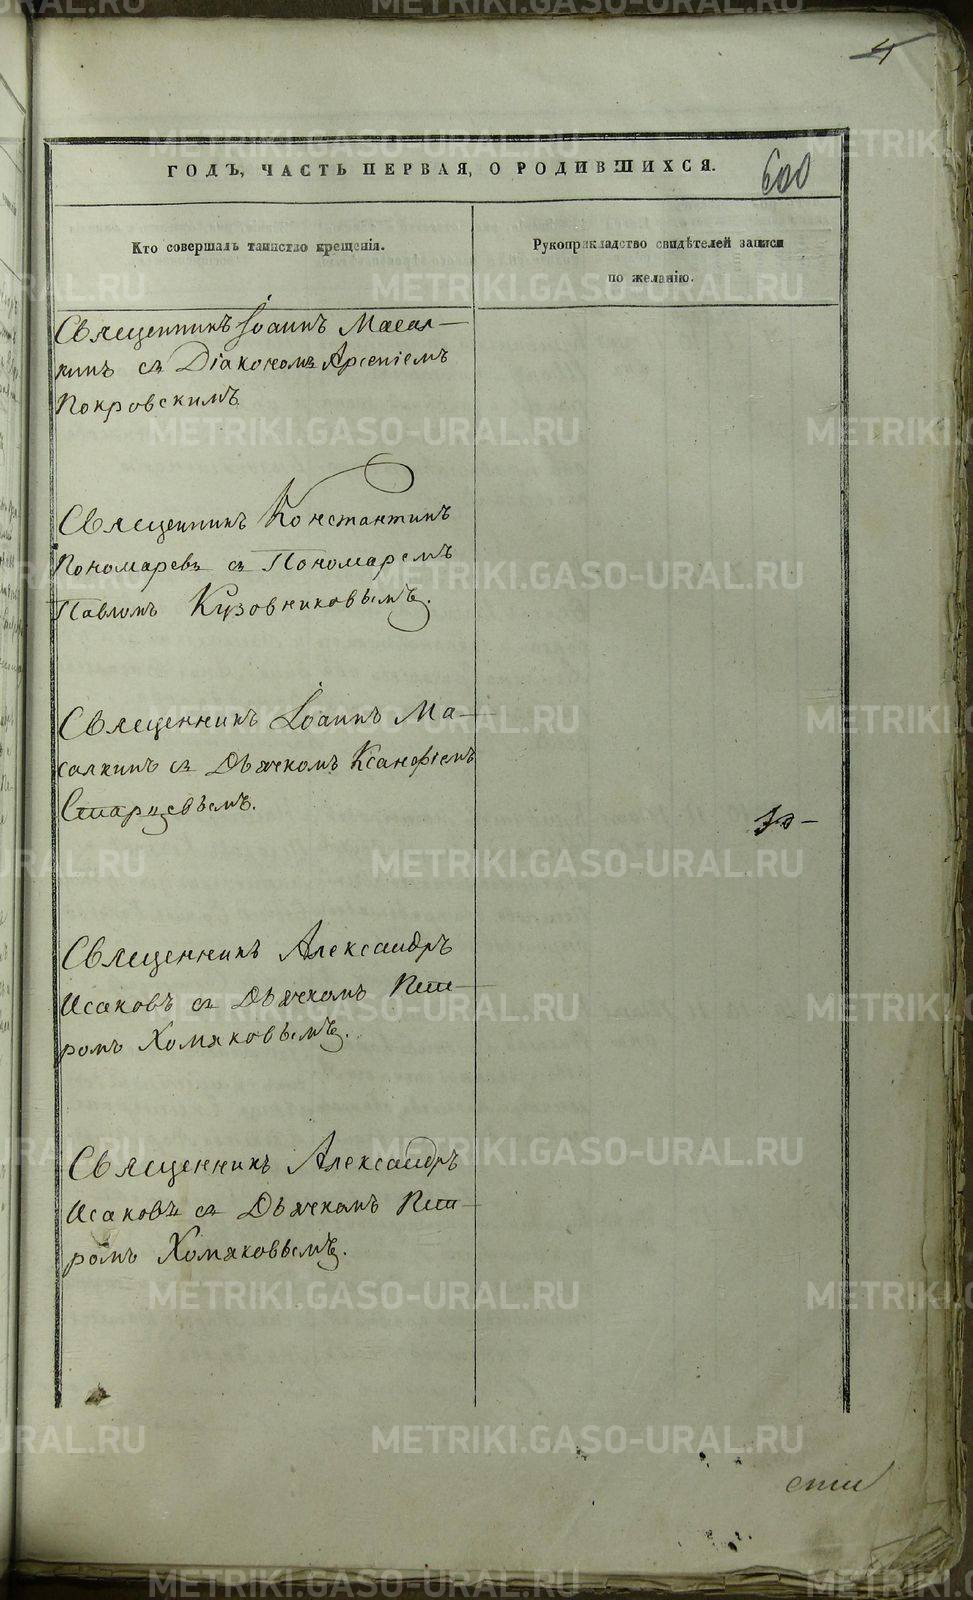 4
ГОДЪ, ЧАСТЬ ПЕРВАЯ, О РОДИВШИХСЯ.
600
Кто совершалъ таинство крещенія.
Рукоприкладство свидѣтелей записи
по желанію.
Священникъ Іоаннъ Масал-
кинъ съ Діакономъ Арсеніемъ
Покровскимъ
Священникъ Константинъ
Пономаревъ съ Пономаремъ
Павломъ Кузовниковымъ.
Священникъ Іоаннъ Ма-
салкинъ съ Дьячкомъ Ксанофіемъ
Старцевымъ.
Священникъ Александръ
Исаковъ съ Дьячкомъ Пет-
ромъ Хомяковымъ.
Священникъ Александръ
Исаковъ съ Дьячкомъ Пет-
ромъ Хомяковымъ.
METRIKI.GASO-URAL.RU